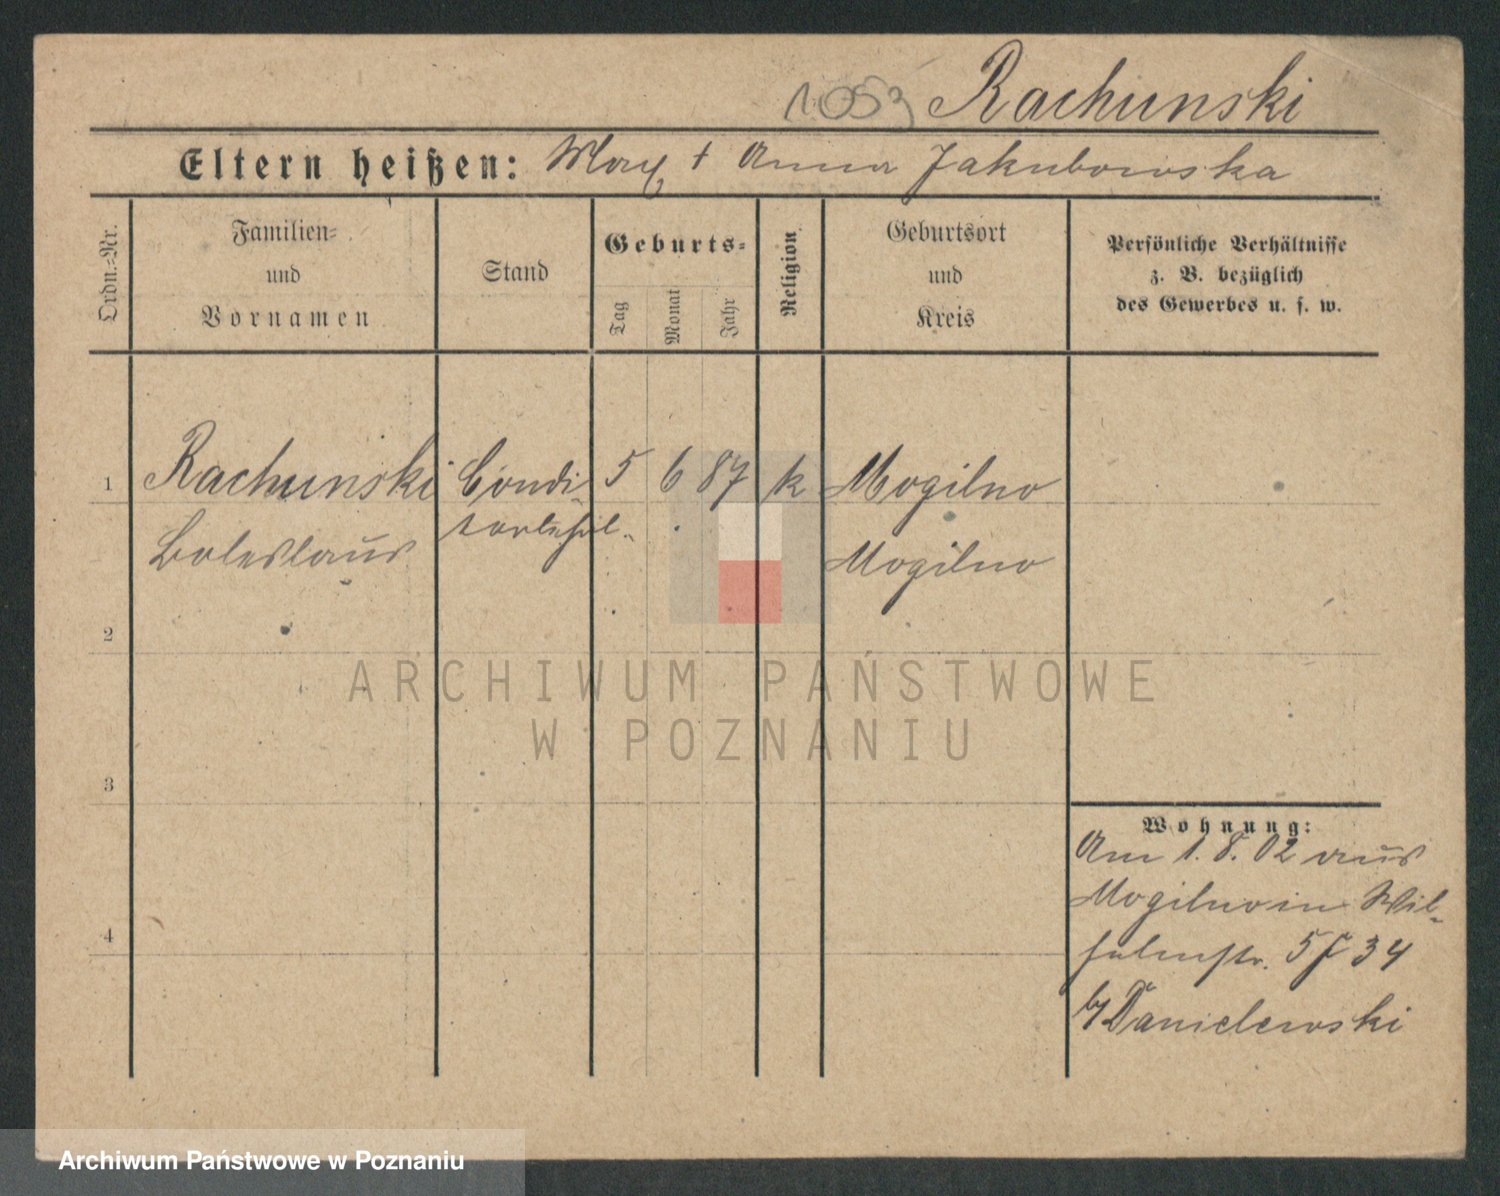 1053 Rachunski
Eltern heißen: Max + Anna Jakubowska
Ordn.-Nr.
Familien-
und
Vornamen
Stand
Geburts-
Tag
Monat
Jahr
Religion
Geburtsort
und
Kreis
Persönliche Verhältnisse
z. B. bezüglich
des Gewerbes u. s. w.
1 Rachunski Condi- 5 6 87 k Mogilno
Boleslaus torlehrl. Mogilno
2
ARCHIWUM PAŃSTWOWE
W POZNANIU
3
Wohnung:
Am 1. 8. 02 aus
Mogilno in Wil-
helmstr. 34
4
b/ Danielewski
Archiwum Państwowe w Poznaniu